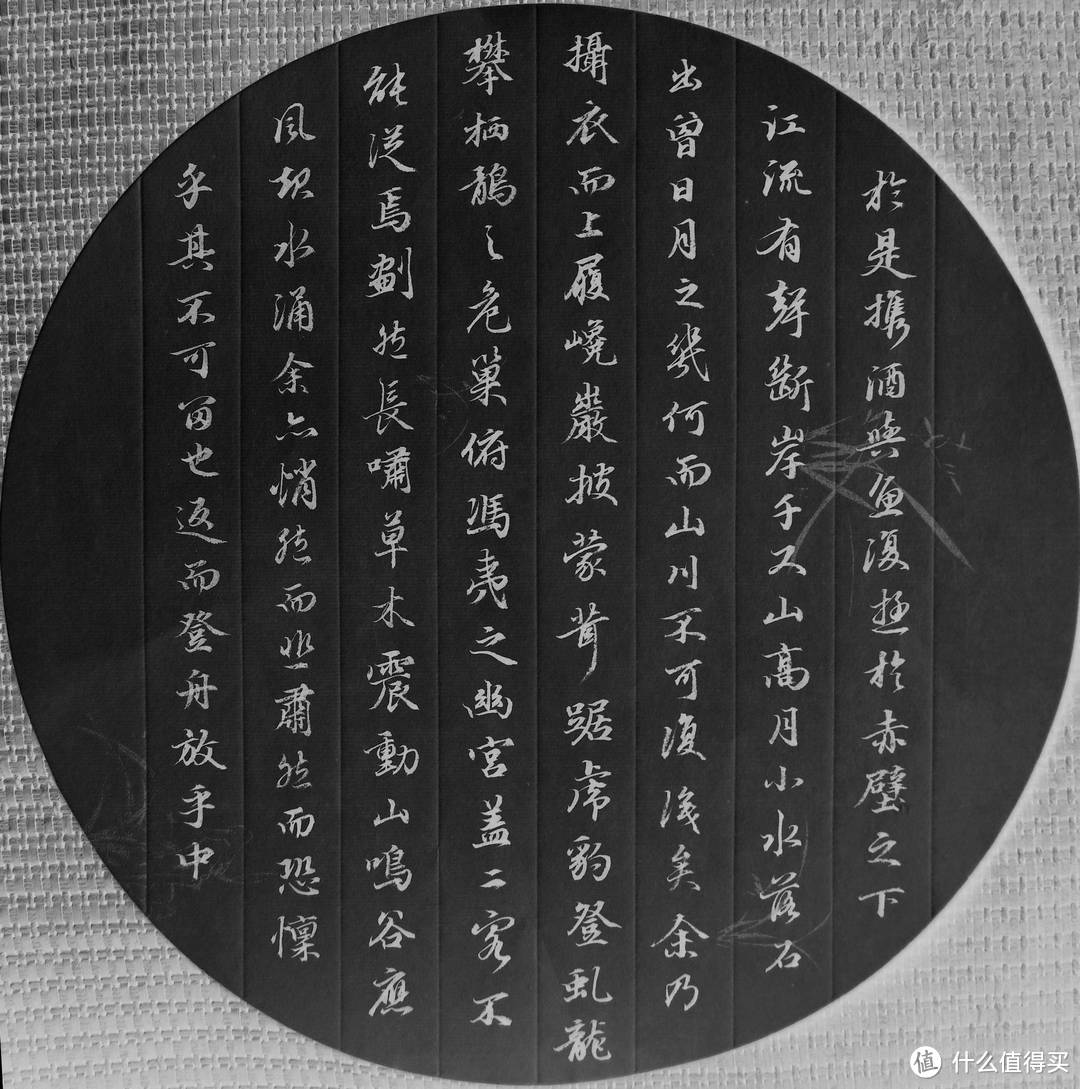 於是攜酒與魚復遊於赤壁之下
江流有聲斷岸千尺山高月小水落石
出曾日月之幾何而山川不可復識矣余乃
攝衣而上履巉巖披蒙茸踞虎豹登虬龍
攀栖鶻之危巢俯馮夷之幽宮盖二客不
能從焉劃然長嘯草木震動山鳴谷應
風起水涌余亦悄然而悲肅然而恐懍
乎其不可留也返而登舟放乎中
值 什么值得买